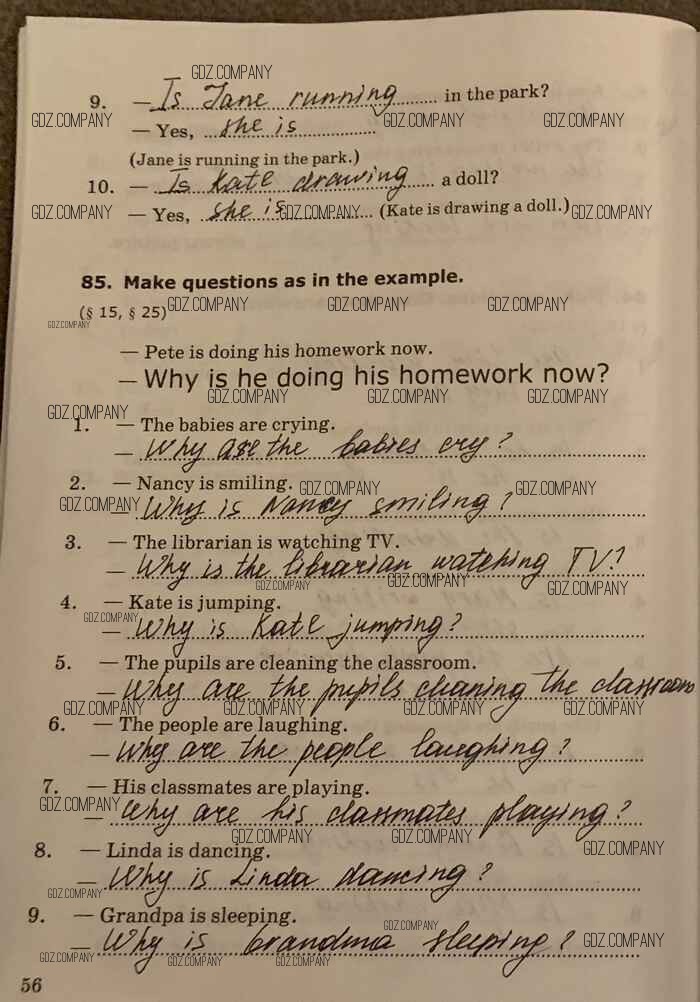 GDZ.COMPANY
9. — Is Jane running in the park?
GDZ.COMPANY GDZ.COMPANY GDZ.COMPANY
— Yes, she is
(Jane is running in the park.)
10. — Is Kate drawing a doll?
— Yes, she is (Kate is drawing a doll.)
GDZ.COMPANY GDZ.COMPANY GDZ.COMPANY
85. Make questions as in the example.
(§ 15, § 25) GDZ.COMPANY GDZ.COMPANY GDZ.COMPANY
GDZ.COMPANY
— Pete is doing his homework now.
— Why is he doing his homework now?
GDZ.COMPANY GDZ.COMPANY GDZ.COMPANY
GDZ.COMPANY
1. — The babies are crying.
— Why are the babies cry?
2. — Nancy is smiling. GDZ.COMPANY GDZ.COMPANY
GDZ.COMPANY
— Why is Nancy smiling?
3. — The librarian is watching TV.
— Why is the librarian watching TV?
GDZ.COMPANY GDZ.COMPANY GDZ.COMPANY
4. — Kate is jumping.
GDZ.COMPANY
— Why is Kate jumping?
5. — The pupils are cleaning the classroom.
— Why are the pupils cleaning the classroom
GDZ.COMPANY GDZ.COMPANY GDZ.COMPANY
6. — The people are laughing.
— Why are the people laughing?
7. — His classmates are playing.
GDZ.COMPANY
— Why are his classmates playing?
GDZ.COMPANY GDZ.COMPANY GDZ.COMPANY
8. — Linda is dancing.
— Why is Linda dancing?
GDZ.COMPANY
9. — Grandpa is sleeping.
GDZ.COMPANY
— Why is Grandma sleeping? GDZ.COMPANY
GDZ.COMPANY GDZ.COMPANY GDZ.COMPANY
56